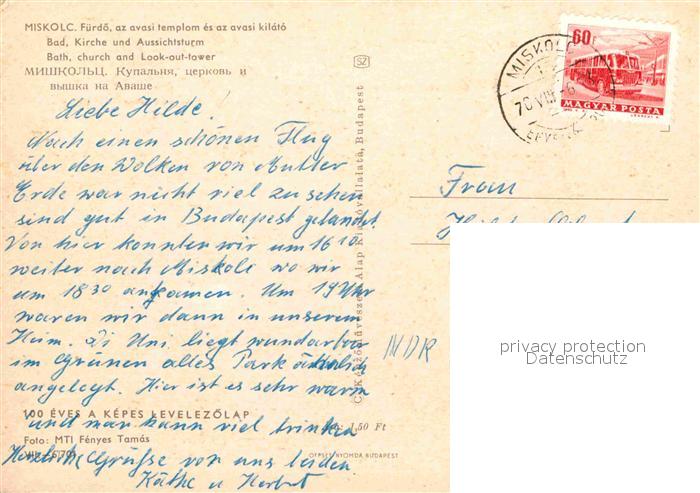 MISKOLC. Fürdő, az avasi templom és az avasi kilátó
Bad, Kirche und Aussichtsturm
Bath, church and Look-out-tower
МИШКОЛЬЦ. Купальня, церковь и
вышка на Аваше
Liebe Hilde!
Nach einen schönen Flug
über den Wolken von Mutter
Erde war nicht viel zu sehen
sind gut in Budapest gelandet.
Von hier konnten wir um 16 10
weiter nach Miskolc wo wir
um 18 30 ankamen. Um 19 Uhr
waren wir dann in unserem
Heim. Di Uni liegt wunderbar
im Grünen alles Park ähnlich
angelegt. Hier ist es sehr warm
100 ÉVES A KÉPES LEVELEZŐLAP
und man kann viel trinken
1,50 Ft
Foto: MTI Fényes Tamás
Herzliche Grüße von uns beiden
OFFSET NYOMDA BUDAPEST
Käthe u Herbert
SZ
Képzőművészeti Alap Kiadóvállalata, Budapest
MISKOLC
70 VIII -6
60f
MAGYAR POSTA
Frau
NDR
privacy protection
Datenschutz